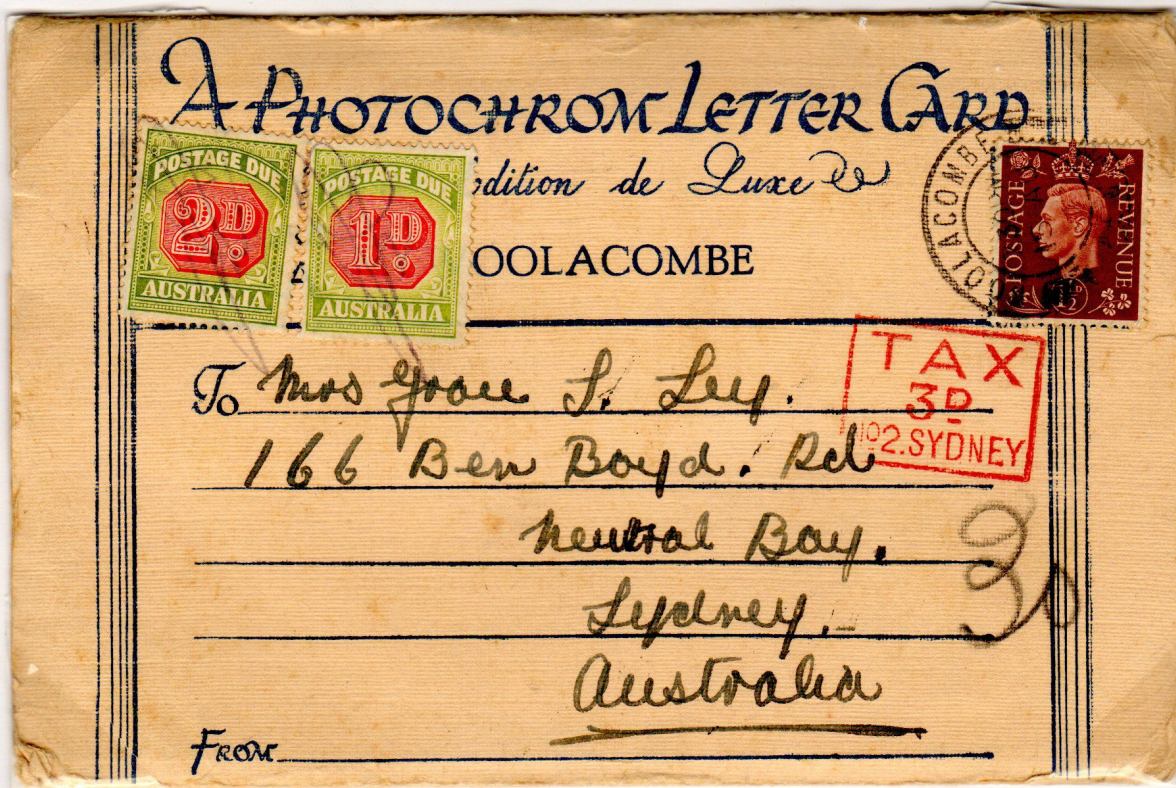 A PHOTOCHROM LETTER CARD
Edition de Luxe
OOLACOMBE
POSTAGE DUE
2D.
AUSTRALIA
POSTAGE DUE
1D.
AUSTRALIA
OOLACOMBE
POSTAGE
REVENUE
TAX
3D
No2.SYDNEY
To Mrs Grace S. Ley.
166 Ben Boyd. Rd
Neutral Bay.
Sydney.
Australia
3
FROM